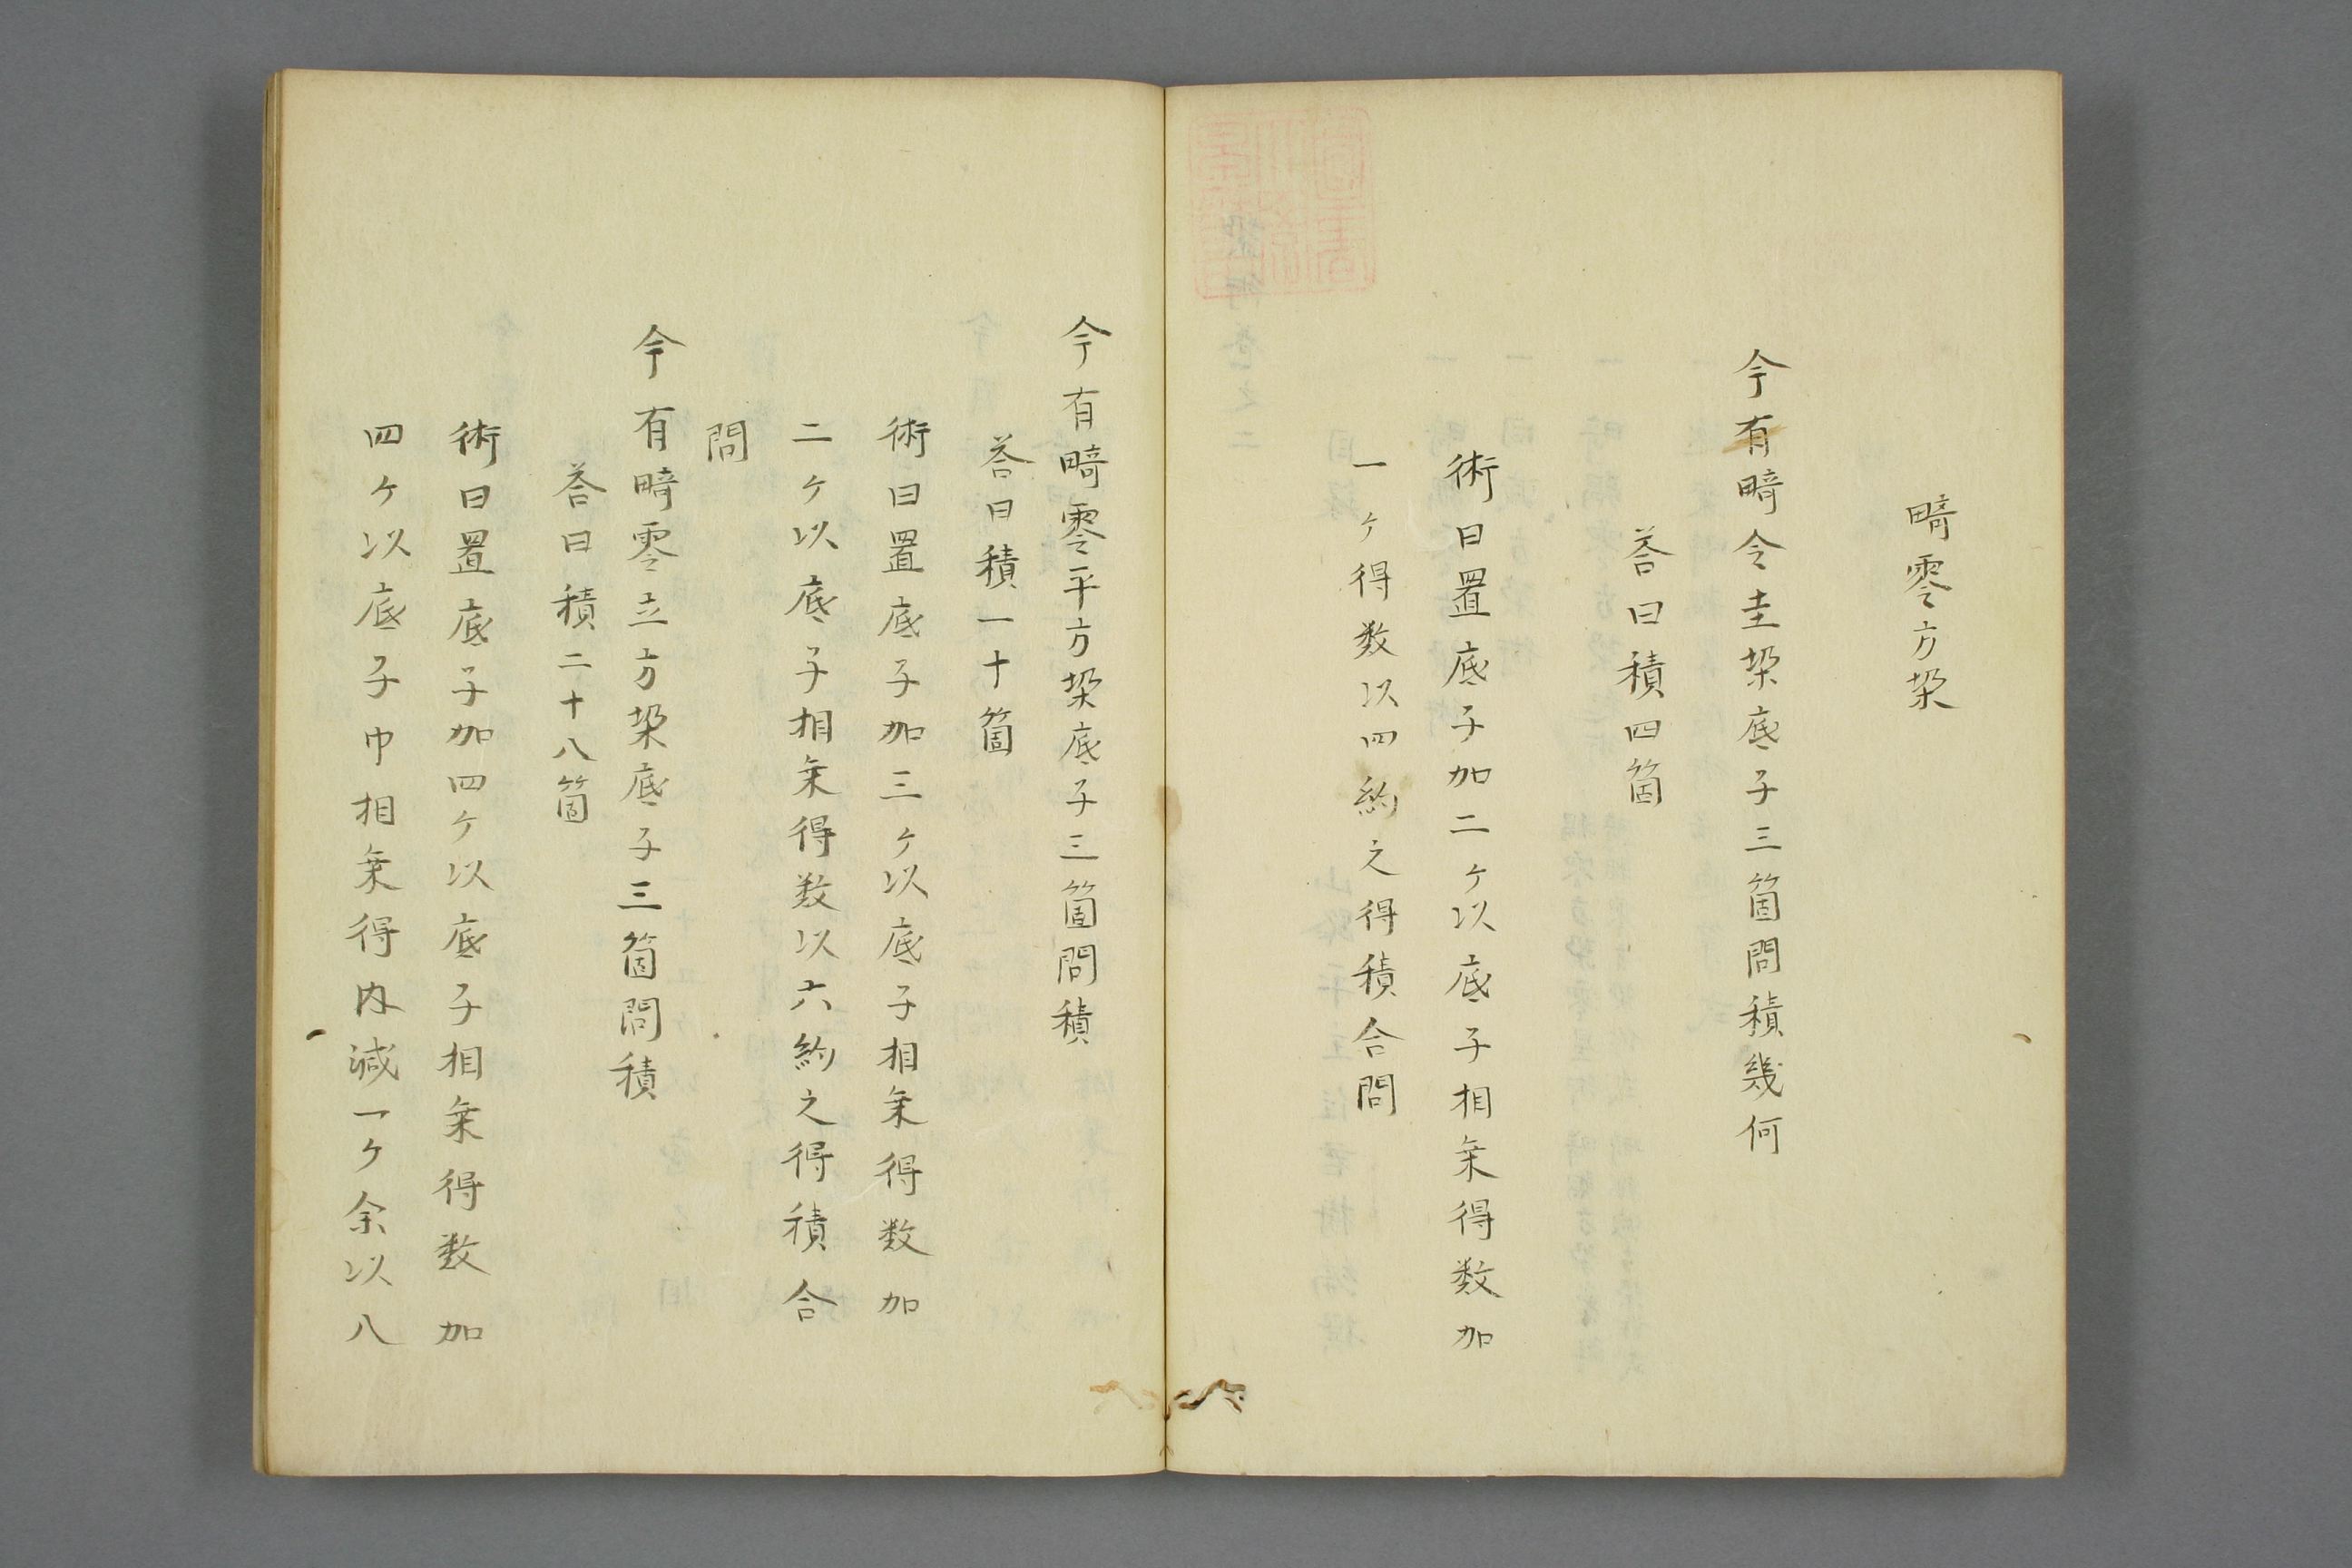 畸零方梁
今有畸令圭梁底子三箇問積幾何
荅曰積四箇
術曰置底子加二ケ以底子相乗得数加
一ケ得数以四約之得積合問
今有畸零平方梁底子三箇問積
荅曰積一十箇
術曰置底子加三ケ以底子相乗得数加
二ケ以底子相乗得数以六約之得積合
問
今有畸零立方梁底子三箇問積
荅曰積二十八箇
術曰置底子加四ケ以底子相乗得数加
四ケ以底子巾相乗得内減一ケ余以八